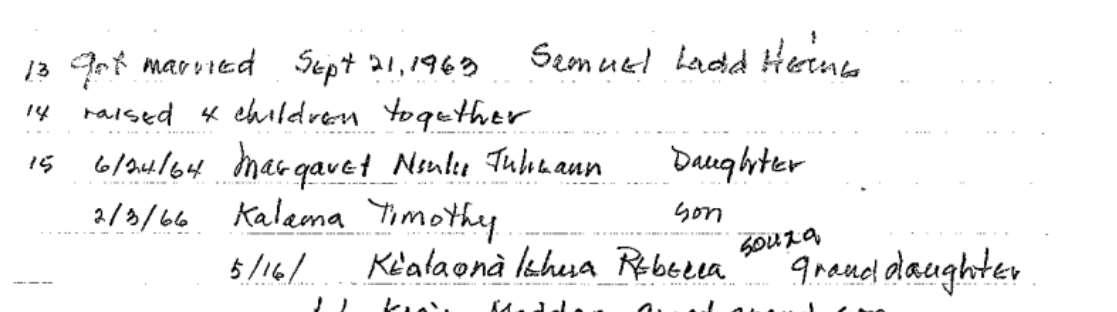 13 got married Sept 21, 1963 Samuel Ladd Heine
14 raised 4 children together
15 6/24/64 Margaret Juliann Daughter
2/3/66 Kalama Timothy son
5/16/ Rebecca Souza granddaughter